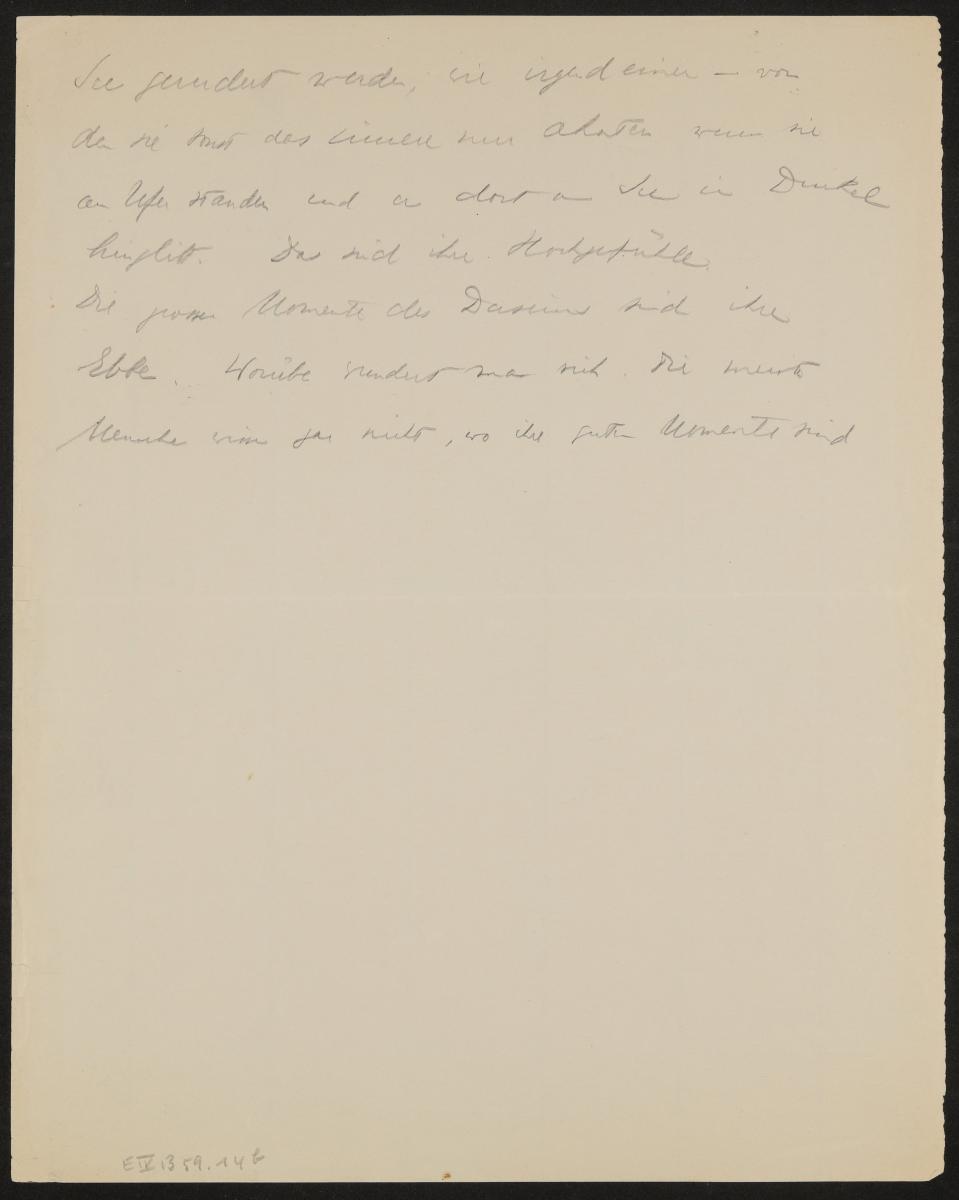 See gerudert werden, wie irgend einer – von
den sie sonst das innere nur ahnten wenn sie
am Ufer standen und er dort am See im Dunkel
hinglitt. Das sind ihre Hochgefühle.
Die grossen Momente des Daseins sind ihre
Ebbe. Worüber wundert man sich. Die meisten
Menschen wissen gar nicht, wo ihre guten Momente sind
E IV B 59.14 b